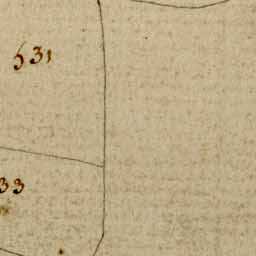 631
33